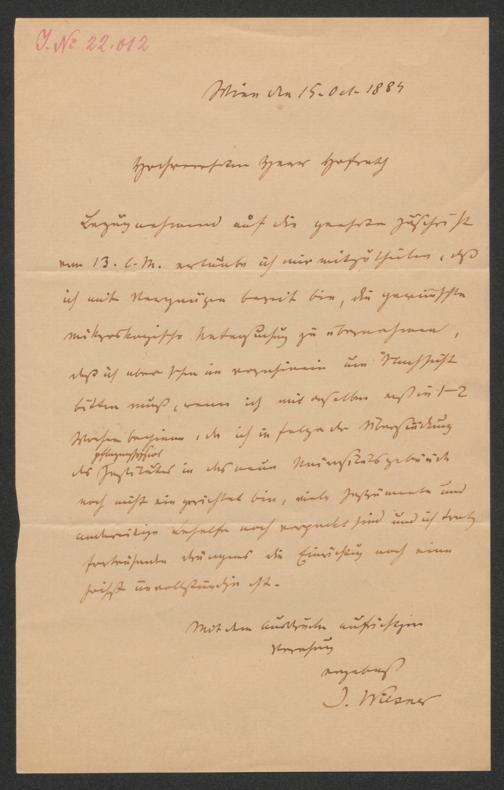 J. No 22.012
Wien den 15. Oct. 1884
Hochverehrter Herr Hofrath
Bezugnehmend auf die geehrte Zuschrift
vom 13. l. M. erlaube ich mir mitzutheilen, daß
ich mit Vergnügen bereit bin, die gewünschte
mikroskopische Untersuchung zu übernehmen,
daß ich aber schon im vorhinein um Nachsicht
bitten muß, wenn ich mit derselben erst in 1–2
Wochen beginne, da ich in folge der Übersiedlung
pflanzenphysiol
des Institutes in das neue Universitätsgebäude
noch nicht eingerichtet bin, viele Instrumente und
anderweitige Behelfe noch verpackt sind und ich trotz
fortwährenden drängens die Einrichtung noch eine
höchst unvollständige ist.
Mit dem Ausdrucke aufrichtiger
Verehrung
ergebenst
J. Wiesner